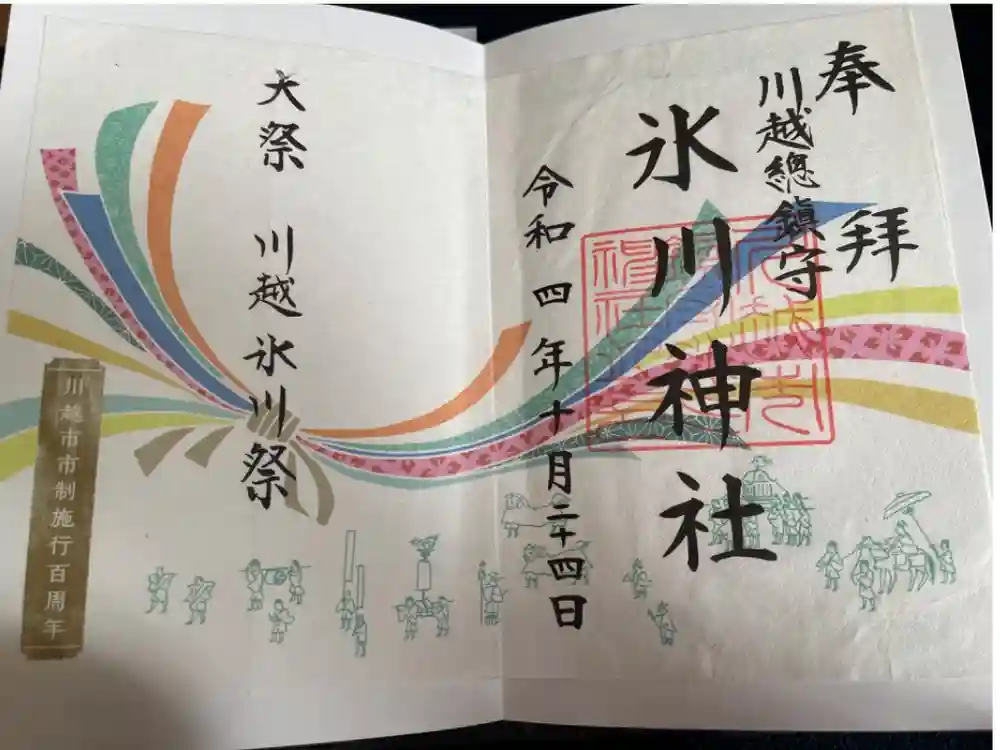 奉拝
川越總鎮守
氷川神社
令和四年十月二十四日
大祭 川越氷川祭
川越市市制施行百周年